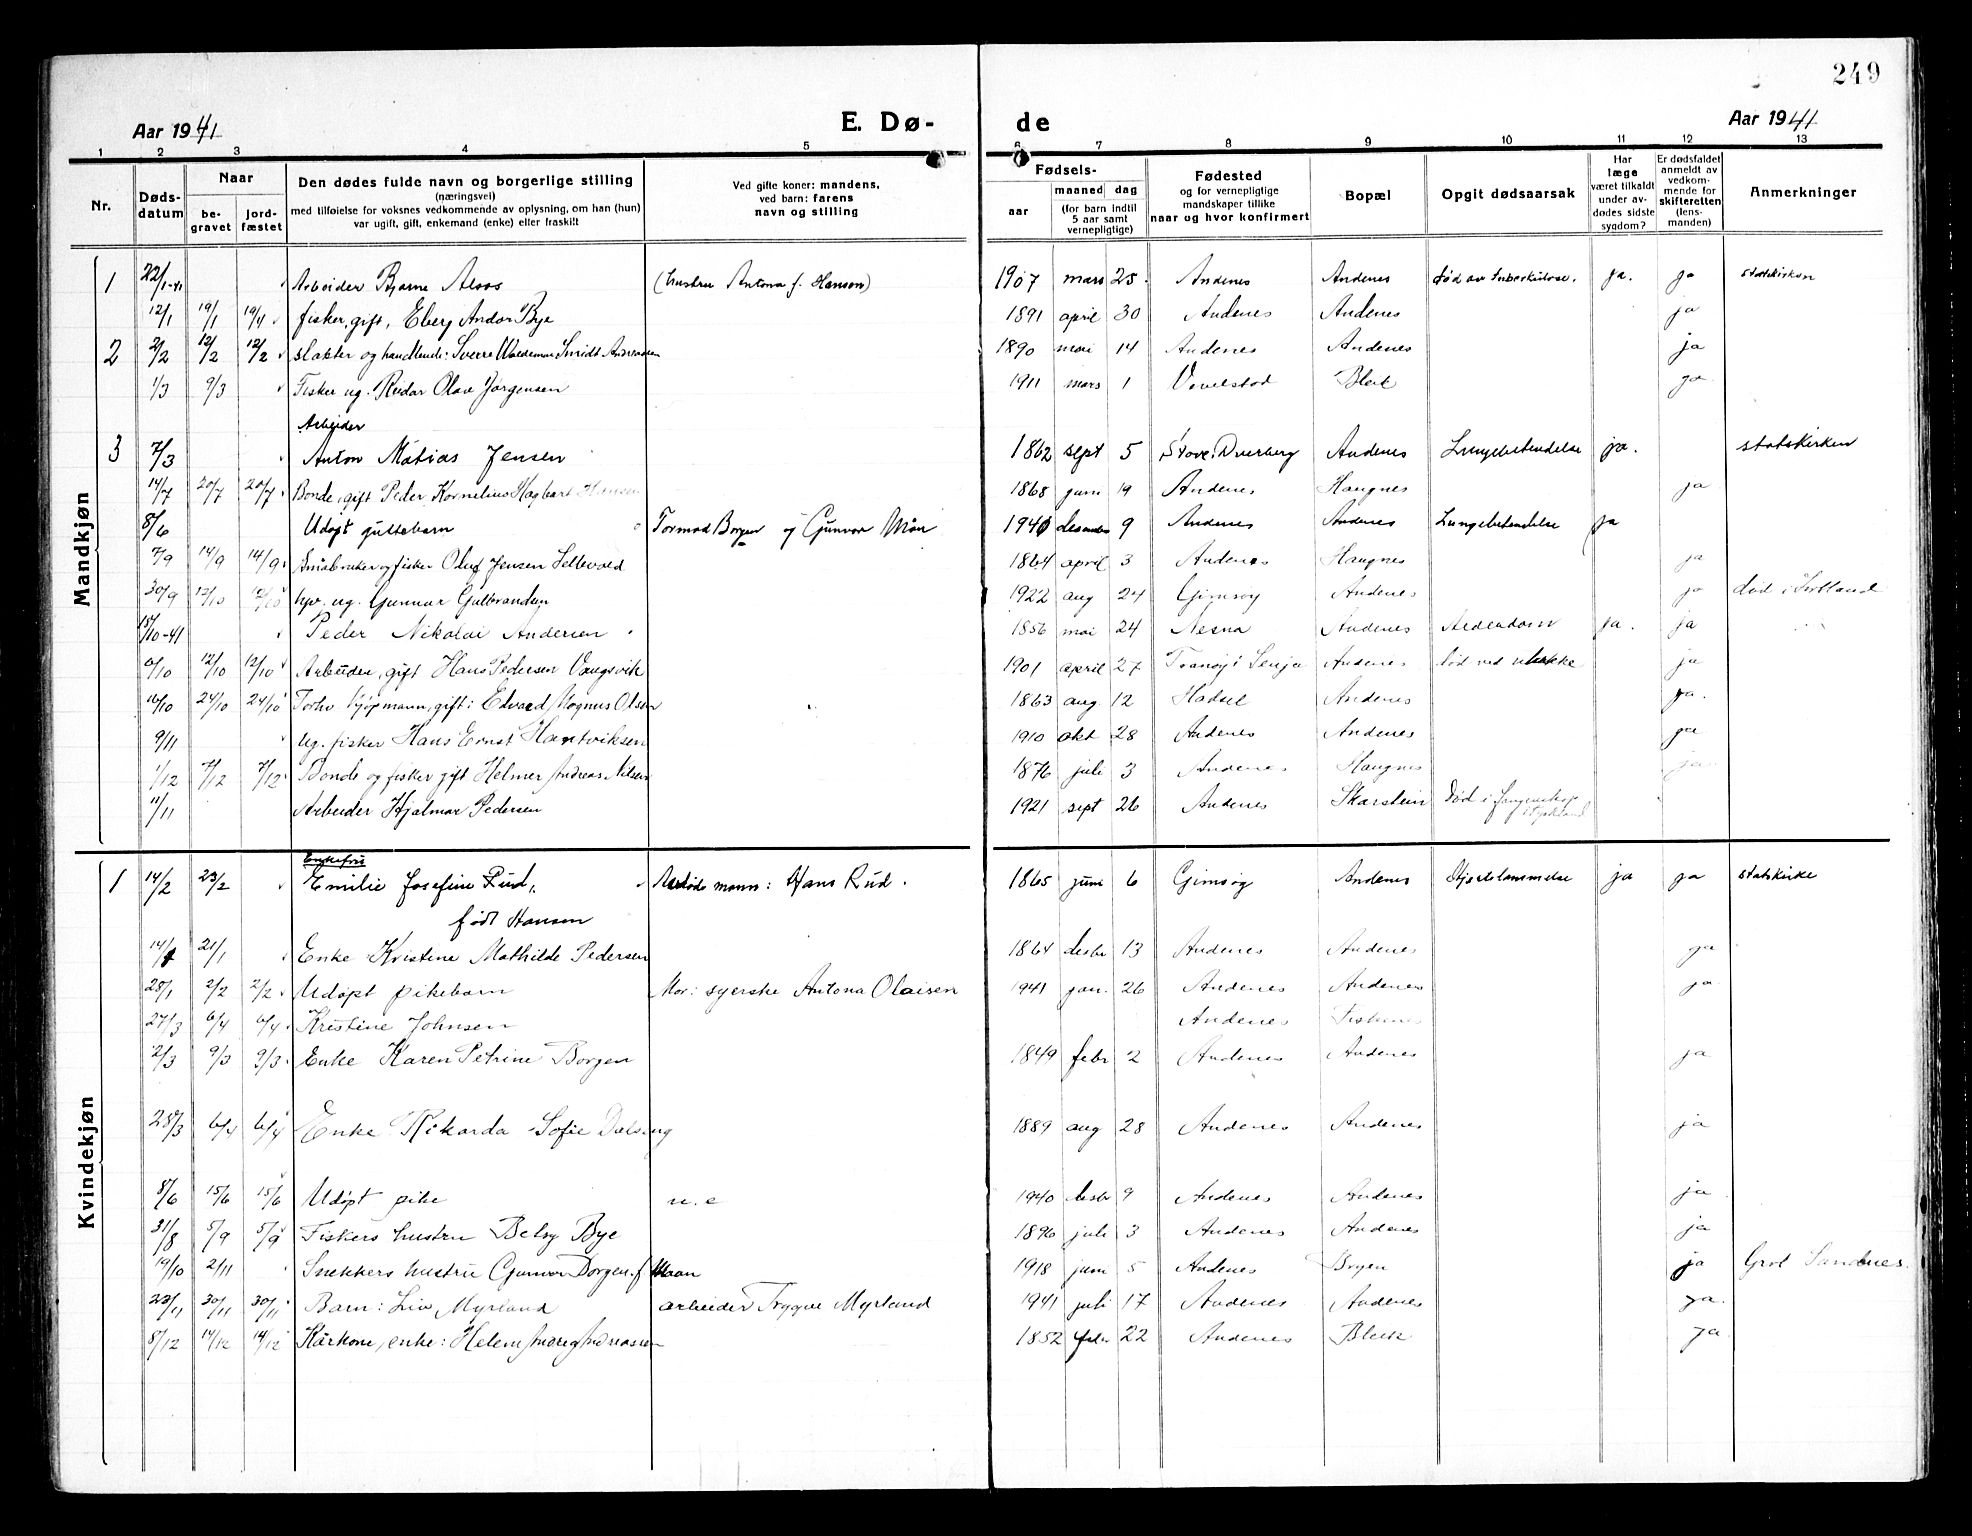 249
Aar 1941 E. Dø- de Aar 1941
1 2 3 4 5 6 7 8 9 10 11 12 13
Nr. Døds-datum Naar be-gravet jord-fæstet Den dødes fulde navn og borgerlige stilling (næringsvei) med tilføielse for voksnes vedkommende av oplysning, om han (hun) var ugift, gift, enkemand (enke) eller fraskilt Ved gifte koner: mandens, ved barn: farens navn og stilling Fødsels- aar maaned dag (for barn indtil 5 aar samt vernepligtige) Fødested og for vernepligtige mandskaper tillike naar og hvor konfirmert Bopæl Opgit dødsaarsak Har læge været tilkaldt under av-dødes sidste sygdom? Er dødsfaldet anmeldt av vedkom-mende for skifteretten (lens-manden) Anmerkninger
Mandkjøn
1 22/1-41 Arbeider Bjarne Aloos (hustru Antona f. Hanson) 1907 mars 25. Andenes Andenes død av Tuberkulose. ja. ja statskirken
12/1 19/1 19/4 fisker, gift, Eberg Andor Bye 1891 april 30 Andenes Andenes ja
2 2/2 12/2 12/2 slakter og handlende: Sverre Waldemar Smidt Andreassen 1890 mai 14 Andenes Andenes ja
1/3 9/3 Fisker ug. Reidar Olav Jørgensen 1911 mars 1 Vevelstad Bleik ja
Arbeider
3 7/3 Anton Matias Jensen 1862 sept 5 Stave, Dverberg Andenes Lungebetendelse ja. statskirken
14/7 20/7 20/7 Bonde, gift Peder Kornelius Hagbart Hansen 1868 juni 19 Andenes Haugnes ja
8/6 Udøpt guttebarn Tormod Borgen og Gunvor Mån 1940 desember 9 Andenes Andenes Lungebetendelse ja
7/9 14/9 14/9 Småbruker og fisker Oluf Jensen Sellevold 1864 april 3 Andenes Haugnes ja
30/9 12/10 12/10 ug. Gunnar Gulbrandsen 1922 aug 24 Gimsøy Andenes ja død i Sortland
15/10-41 Peder Nikolai Andersen 1856 mai 24 Nesna Andenes Alderdom ja. ja
6/10 12/10 12/10 Arbeider, gift Hans Pedersen Vangsvik 1901 april 27 Tranøy i Senja Andenes død ved ulykke ja
16/10 24/10 24/10 Forhv kjøpmann, gift: Edvard Magnus Olsen 1863 aug. 12 Hadsel Andenes ja.
9/11 ug. fisker Hans Ernst Hantviksen 1910 okt 28 Andenes Andenes ja
1/12 7/12 7/12 Bonde og fisker gift Helmer Andreas Nilsen 1876 juli 3 Andenes Haugnes ja.
11/11 Arbeider Hjalmar Pedersen 1921 sept 26 Andenes Skarstein død i fangenskap i Tyskland
Kvindekjøn
Enkefru
1 14/2 23/2 Emilie Josefine Rud, Avdøde mann: Hans Rud. 1865 juni 6 Gimsøy Andenes Hjertelammelse ja ja statskirke
født Hansen
14/1 21/1 Enke Kristine Mathilde Pedersen 1864 desbr 13 Andenes Andenes ja
28/1 2/2 2/2 Udøpt pikebarn Mor: syerske Antona Olaisen 1941 jan. 26 Andenes Andenes ja
27/3 6/4 6/4 Kristine Johnsen Andenes Fiskenes
2/3 9/3 9/3 Enke Karen Petrine Borgen 1849 febr 2 Andenes Andenes ja
28/3 6/4 6/4 Enke Rikarda Sofie Dalseng 1889 aug 28 Andenes Andenes ja
8/6 15/6 15/6 Udøpt pike u. e 1940 desbr 9 Andenes Andenes ja
31/8 5/9 5/9 Fiskers hustru Betsy Bye 1896 juli 3 Andenes Andenes ja
19/10 2/11 Snekkers hustru Gunvor Borgen. f Maan 1918 juni 5 Andenes Bryen ja Gravl Sandnes.
23/11 30/11 30/11 Barn: Liv Myrland arbeider Trygve Myrland 1941 juli 17 Andenes Andenes ja.
8/12 14/12 14/12 Kårkone, enke: Helene Andrea Andreassen 1852 febr 22 Andenes Bleik ja.